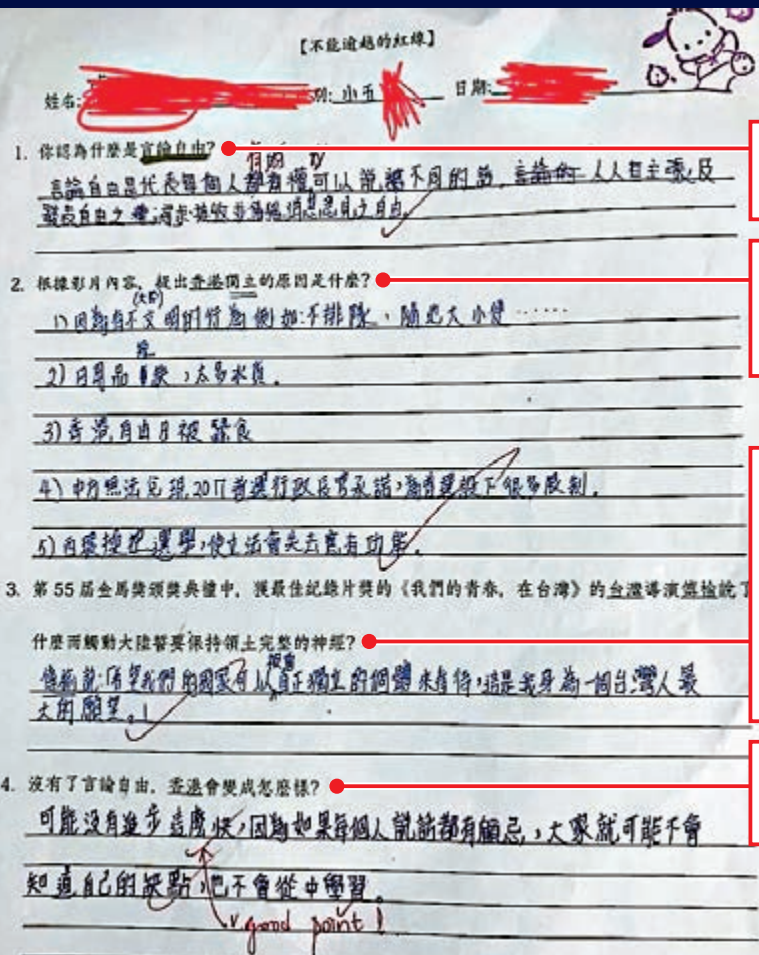 【不能逾越的紅線】
姓名: 別: 小五 日期:
1. 你認為什麼是言論自由?
言論自由是代表每個人都有權可以說不同的話, 言論的 人人有主張,及
發表自由之權;尋求、接收並傳播消息意見之自由。
2. 根據影片內容, 提出香港獨立的原因是什麼?
1) 因為有不文明的行為例如:不排隊、隨地大小便……
2) 日用品 缺,太多水貨。
3) 香港自由日被蠶食
4) 中方無法兌現2017普選行政長官承諾,為普選設下很多限制。
5) 內地操控選舉,使立法會失去應有功能。
3. 第 55 屆金馬獎頒獎典禮中, 獲最佳紀錄片獎的《我們的青春, 在台灣》的台灣導演傅榆說了
什麼而觸動大陸誓要保持領土完整的神經?
傅榆說:「希望我們的國家可以被當真正獨立的個體來看待,這是我身為一個台灣人最
大的願望。」
4. 沒有了言論自由, 香港會變成怎麼樣?
可能沒有進步這麼快,因為如果每個人說話都有顧忌,大家就可能不會
知道自己的缺點,也不會從中學習。
good point!